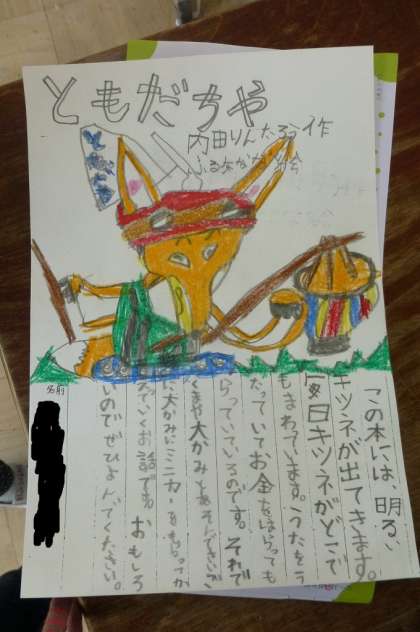 ともだちや
内田りんたろう作
ふるなかな 絵
ともだちや
この本には、明るい
キツネが出てきます。
毎日キツネがどこで
もまわています。うたをう
たっていてお金をはらっても
らっているのです。それで
くまや大かみとあそんでさいご
に大かみにミニカーをもらってか
えでいくお話です。おもしろ
いのでぜひよんでください。
名前